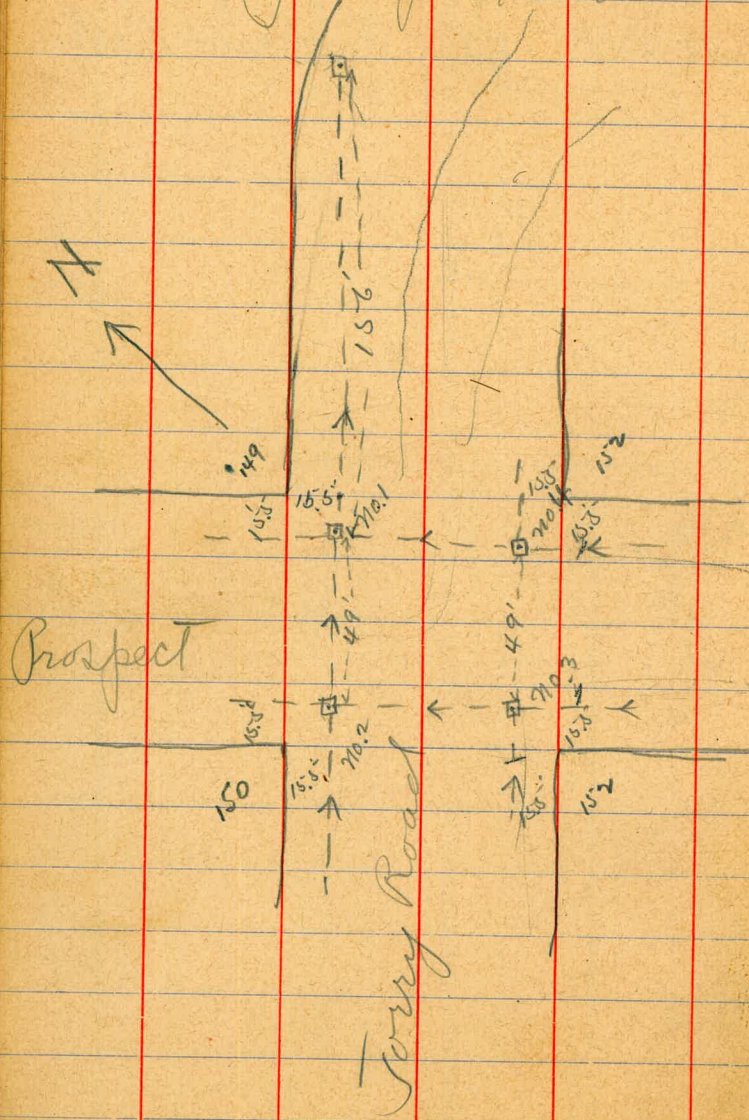 N
156'
149
15.5'
15.5'
No.1
15.5
No.4
15.5
152
49'
49'
Prospect
No.3
15.5
15.5
No.2
15.5
150
15.5
152
Torry Road